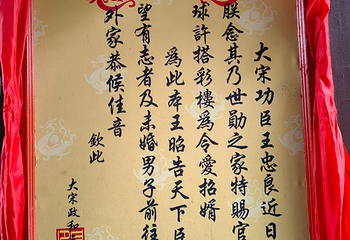 大宋功臣王忠良近日
朕念其乃世勋之家特賜官
球許搭彩樓為令愛招婿
為此本王昭告天下臣
望有志者及未婚男子前往
外家恭候佳音
欽此
大宋政和